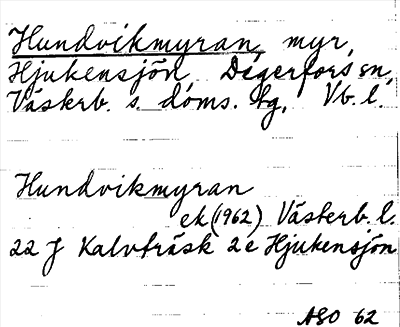 Hundvikmyran, myr,
Hjukensjön, Degerfors sn,
Västerb. s. doms. tg, Vb. l.
Hundvikmyran
ek (1962) Västerb. l.
22 J Kalvträsk 2e Hjukensjön
ASO 62